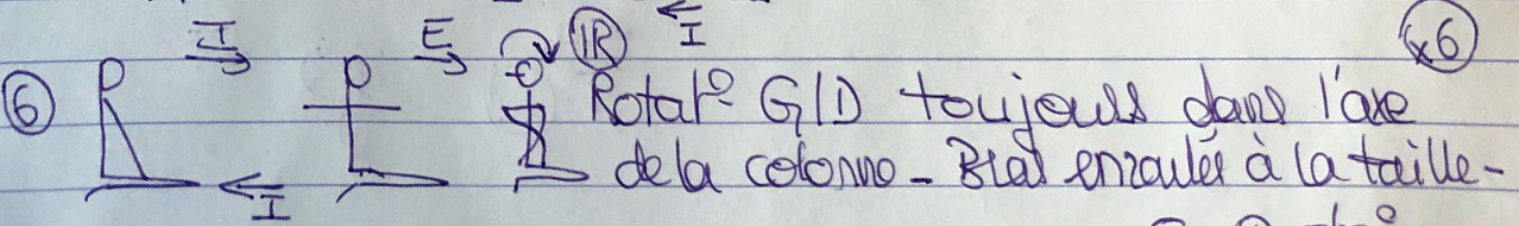 I
I E 1R x6
6 Rotat° G/D toujours dans l'axe
de la colonne - Bras enroulés à la taille -
I